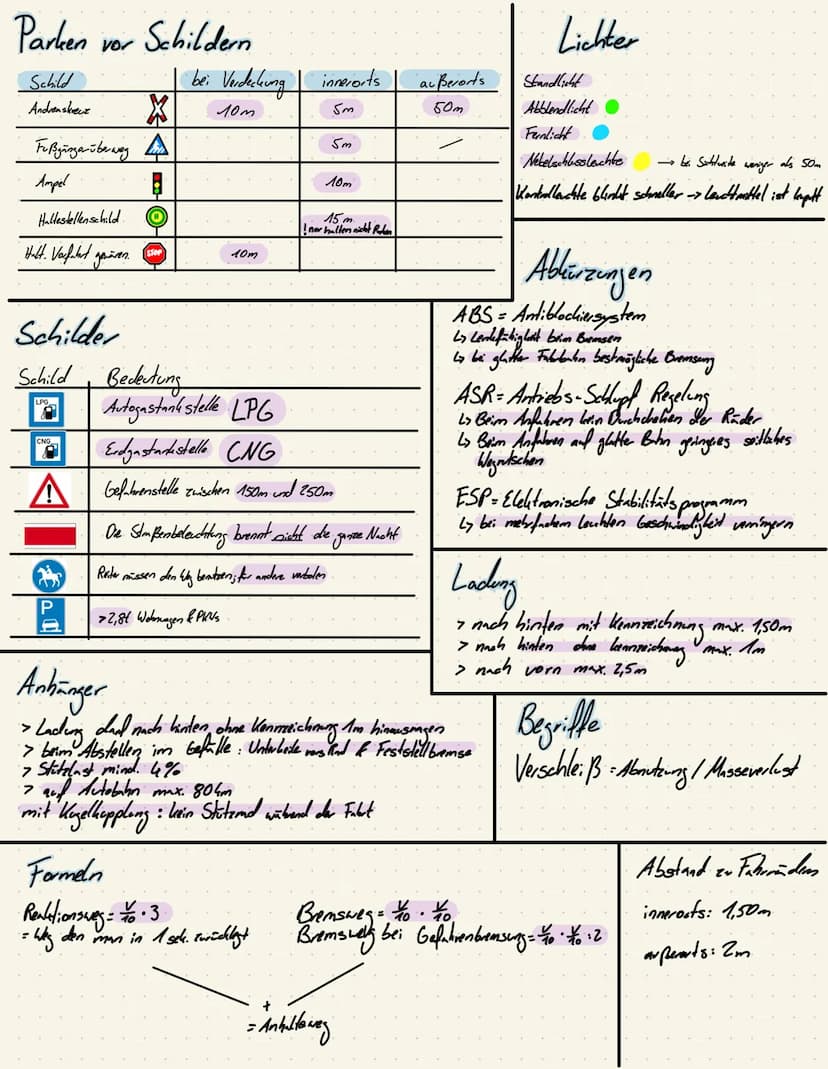 Parken vor Schildern
Schild bei Verdeckung innerorts außerorts
Andreaskreuz 10m 5m 50m
Fußgängerüberweg 5m —
Ampel 10m
Haltestellenschild H 15m
! nur halten nicht Parken
Halt. Vorfahrt gewähren. STOP 10m
Lichter
Standlicht
Abblendlicht
Fernlicht
Nebelschlussleuchte → bei Sichtweite weniger als 50m
Kontrollleuchte blinkt schneller → Leuchtmittel ist kaputt
Schilder
Schild Bedeutung
LPG Autogastankstelle LPG
CNG Erdgastankstelle CNG
! Gefahrenstelle zwischen 150m und 250m
Die Straßenbeleuchtung brennt nicht die ganze Nacht
Reiter müssen den Weg benutzen, für andere verboten
P >2,8t Wohnwagen & PKWs
Abkürzungen
ABS = Antiblockiersystem
↳ Lenkfähigkeit beim Bremsen
↳ bei glatter Fahrbahn bestmögliche Bremsung
ASR = Antriebs-Schlupf Regelung
↳ Beim Anfahren kein Durchdrehen der Räder
↳ Beim Anfahren auf glatter Bahn geringes seitliches
Wegrutschen
ESP = Elektronische Stabilitätsprogramm
↳ bei mehrfachem leuchten Geschwindigkeit verringern
Ladung
> nach hinten mit Kennzeichnung max. 1,50m
> nach hinten ohne kennzeichnung max. 1m
> nach vorn max. 2,5m
Anhänger
> Ladung darf nach hinten ohne Kennzeichnung 1m hinausragen
> beim Abstellen im Gefälle: Unterkeile vors Rad & Feststellbremse
> Stützlast mind. 4%
> auf Autobahn max. 80km
mit Kugelkupplung: kein Stützrad während der Fahrt
Begriffe
Verschleiß = Abnutzung / Masseverlust
Formeln
Reaktionsweg = V/10 · 3
= Weg den man in 1 sek. zurücklegt
Bremsweg = V/10 · V/10
Bremsweg bei Gefahrenbremsung = V/10 · V/10 : 2
+
= Anhalteweg
Abstand zu Fahrrädern
innerorts: 1,50m
außerorts: 2m